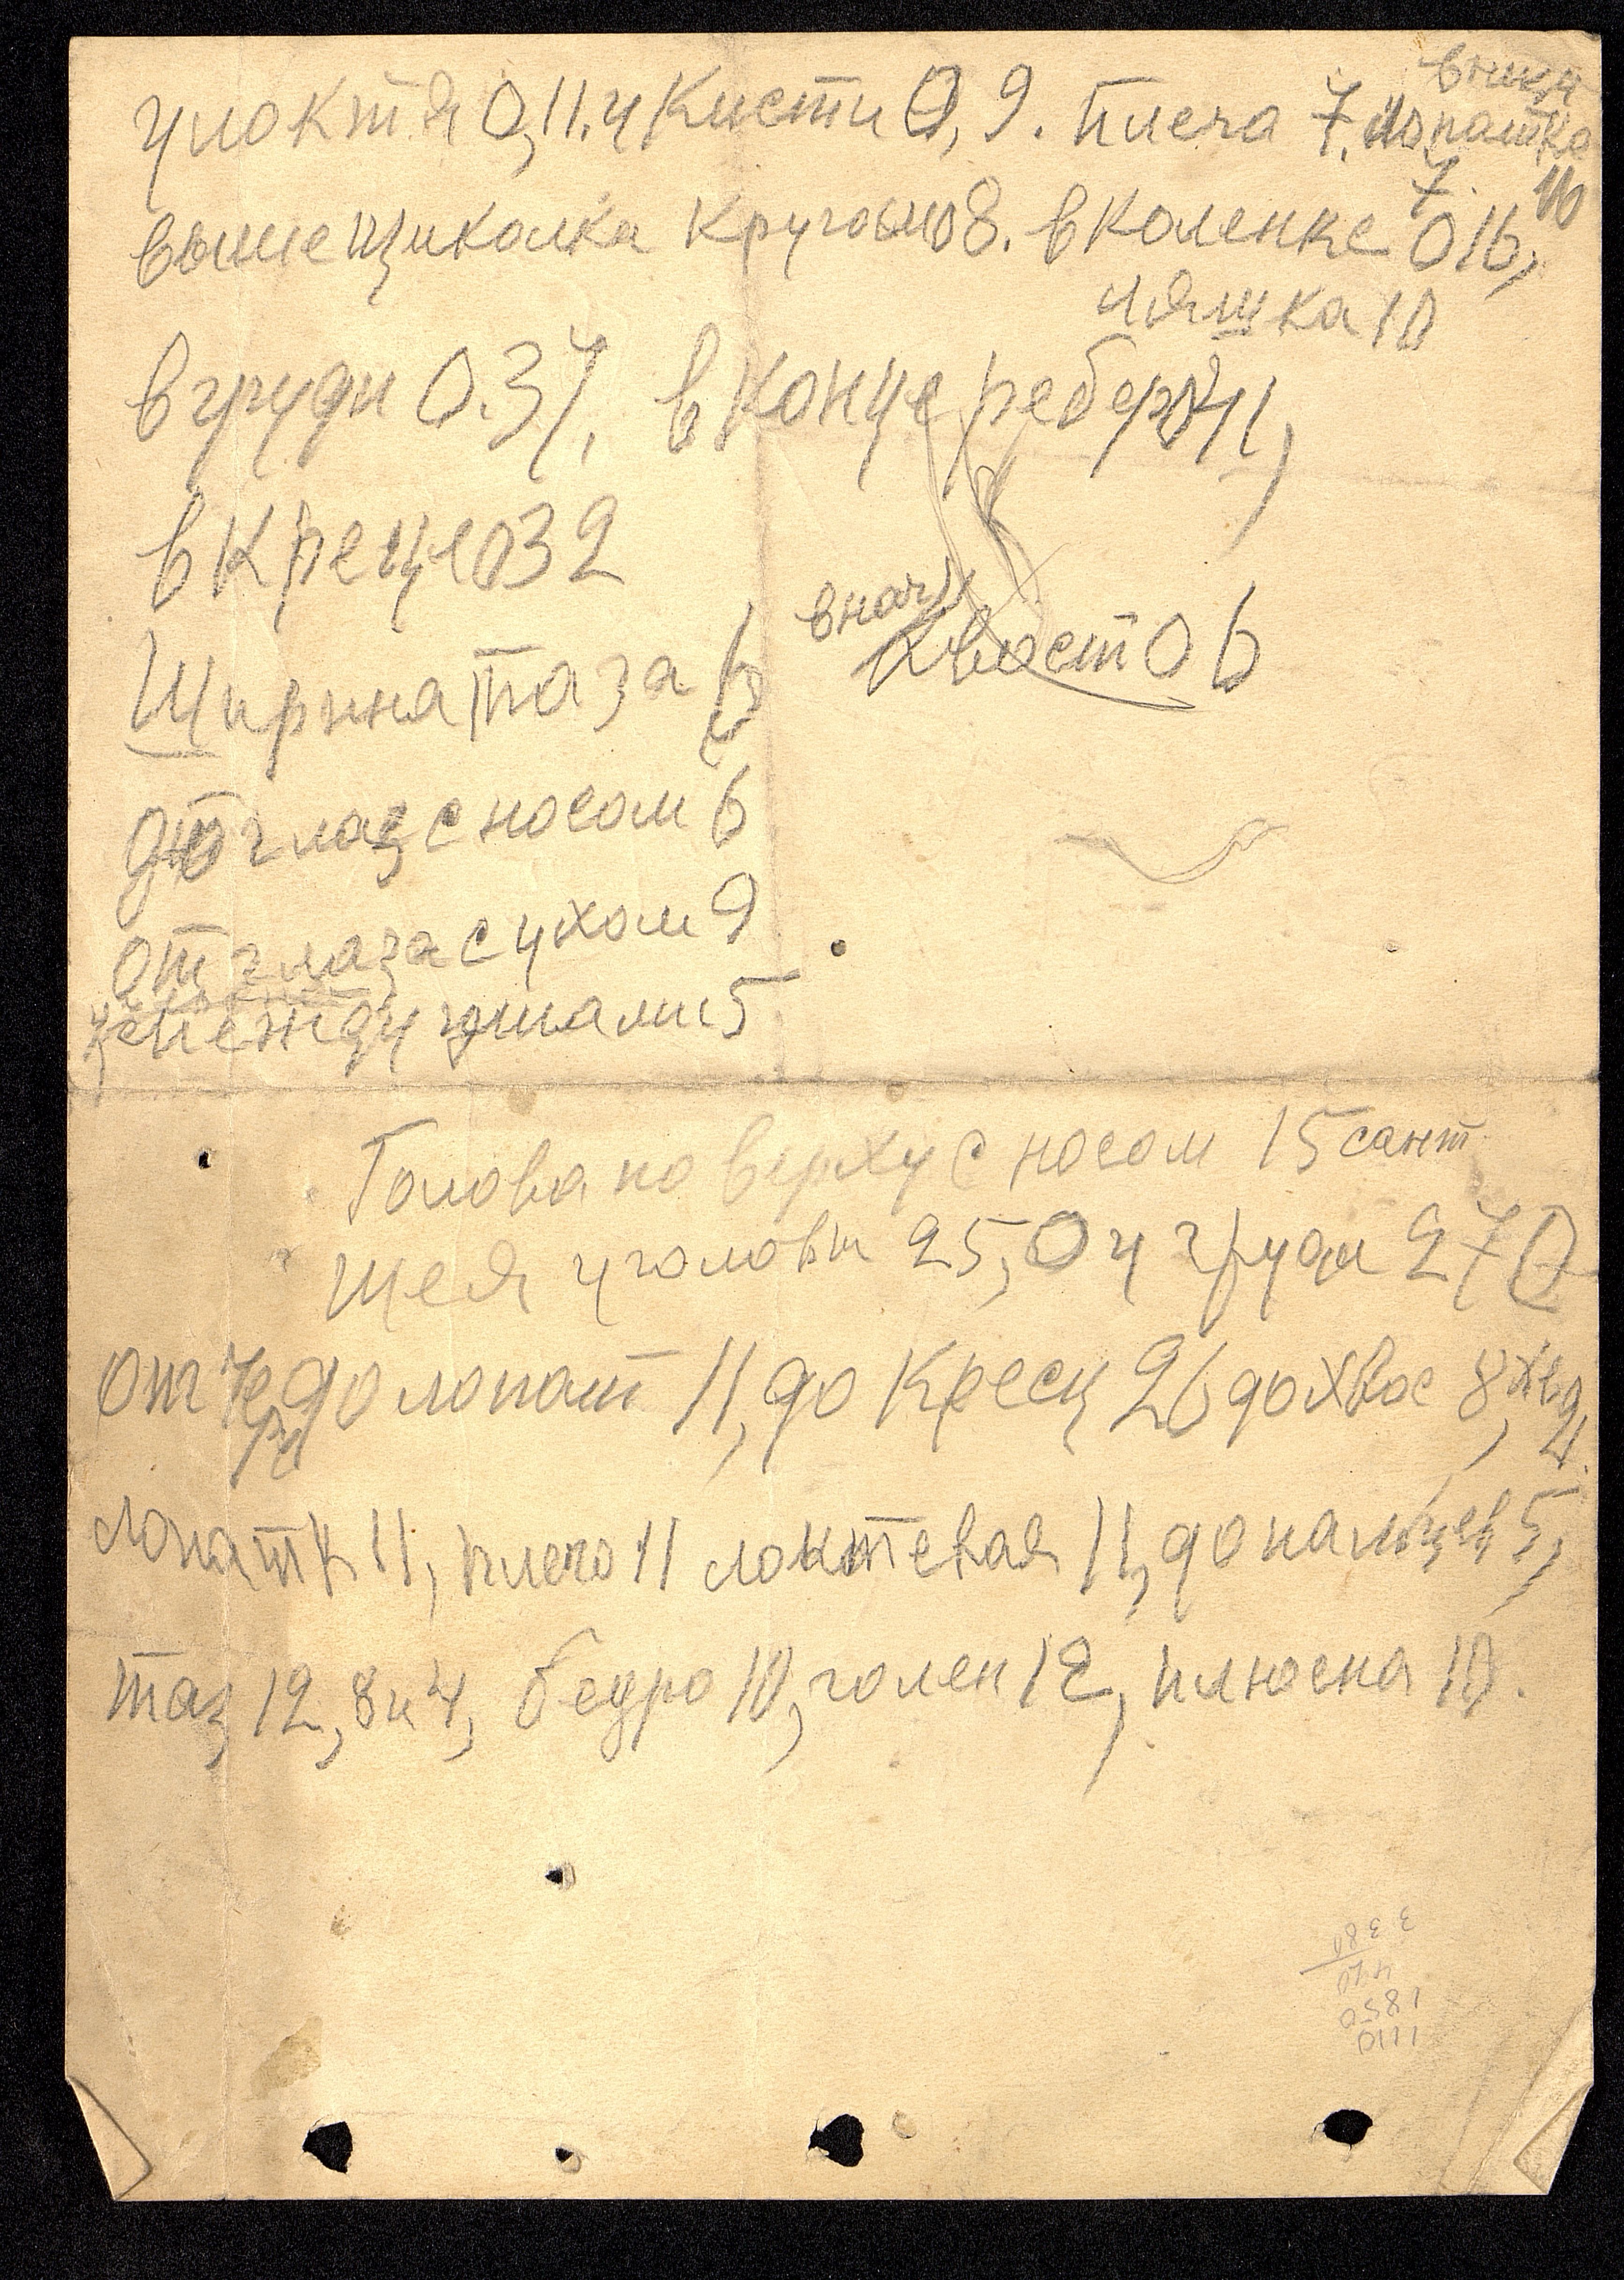 у локтя 0,11. у кисти 0,9. плеча 7, лопатка
7. 10
выше щиколка кругом 8. в коленке 016,
ляшка 10
в груди 0.37, в конце ребер 41,
в креце 032
Ширина таза 6
внач
хвост 06
от глаз с носом 6
от глаза с ухом 9
между ушами 5
Голова по верху с носом 15 сант
Шея у головы 25, 0 у груди 27 0
от до лопат 11, до крест 26 до хвос 8,
лопатк 11, плечо 11 локтевая 11, до пальцев 5,
таз 12, 8 и 4, бедро 10, голен 12, плюсна 10.
1110
1850
420
3380